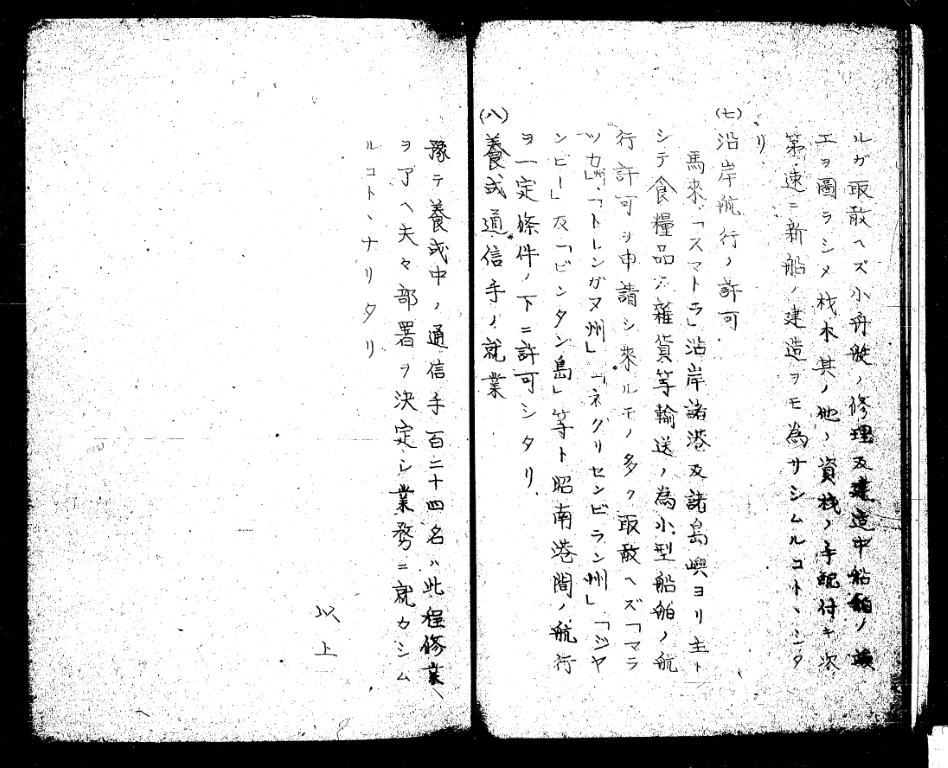 ルガ取敢ヘズ小舟艇ノ修理及建造中船舶ノ竣
工ヲ圖ラシメ材木其ノ他ノ資材ノ手配付キ次
第速ニ新船ノ建造ヲモ為サシムルコトヽシタ
リ
(七)沿岸航行ノ許可
馬來、「スマトラ」沿岸諸港及諸島嶼ヨリ主ト
シテ食糧品雑貨等輸送ノ為小型船舶ノ航
行許可ヲ申請シ來ルモノ多ク取敢ヘズ「マラ
ツカ」州、「トレンガヌ州」「ネグリセンビラン州」「ジヤ
ンビー」及「ビンタン島」等ト昭南港間ノ航行
ヲ一定條件ノ下ニ許可シタリ
(八)養成通信手ノ就業
豫テ養成中ノ通信手百二十四名ハ此程修業
ヲ了ヘ夫々部署ヲ決定シ業務ニ就カシム
ルコトヽナリタリ
以上